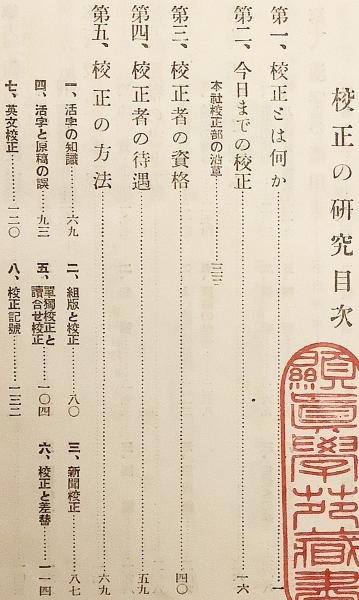 校正の研究目次
第一、校正とは何か……一
第二、今日までの校正……一六
本社校正部の沿革……三三
第三、校正者の資格……四〇
第四、校正者の待遇……五九
第五、校正の方法……六九
一、活字の知識……六九
二、組版と校正……八〇
三、新聞校正……八七
四、活字と原稿の誤……九三
五、單獨校正と讀合せ校正……一〇四
六、校正と差替……一一四
七、英文校正……一二〇
八、校正記號……一三二
顯眞學苑藏書